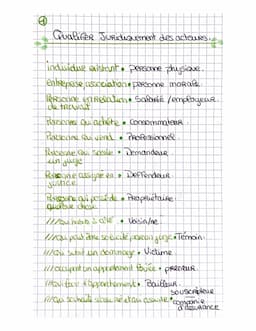 Qualifier Juridiquement des acteurs.
individue existant • personne physique.
entreprise, association • personne morale.
Personne en relation • Salarié / employeur.
de travail
Personne qui achète • Consommateur
Personne qui vend • Professionnel
Personne qui saisie • Demandeur
un juge
Personne assigné en • Défendeur
justice
Personne qui possède • Propriétaire
quelque chose
///qui habite à côté • Voisin/ne.
///qui peut être sollicité par un juge • Témoin.
///qui subit un dommage • Victime
///occupant un appartement louée •
///qui loue l'appartement • Bailleur.
souscripteur
///qui souhaite • compagnie
d'assurance